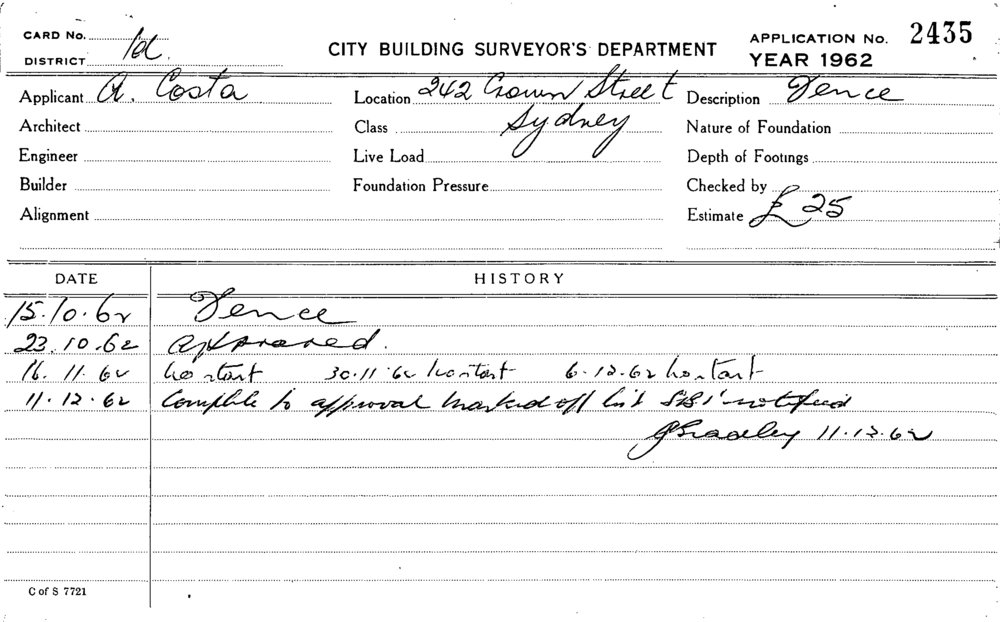 CARD No.
DISTRICT 1d.
CITY BUILDING SURVEYOR'S DEPARTMENT
APPLICATION No. 2435
YEAR 1962
Applicant A. Costa
Location 242 Crown Street
Sydney
Description Fence
Architect
Class
Nature of Foundation
Engineer
Live Load
Depth of Footings
Builder
Foundation Pressure
Checked by
Alignment
Estimate £ 25
DATE HISTORY
15.10.62 Fence
23.10.62 Approved.
16.11.62 No start 30.11.62 No start 6.12.62 No start
11.12.62 Complete to approval marked off list notified
11.12.62
C of S 7721